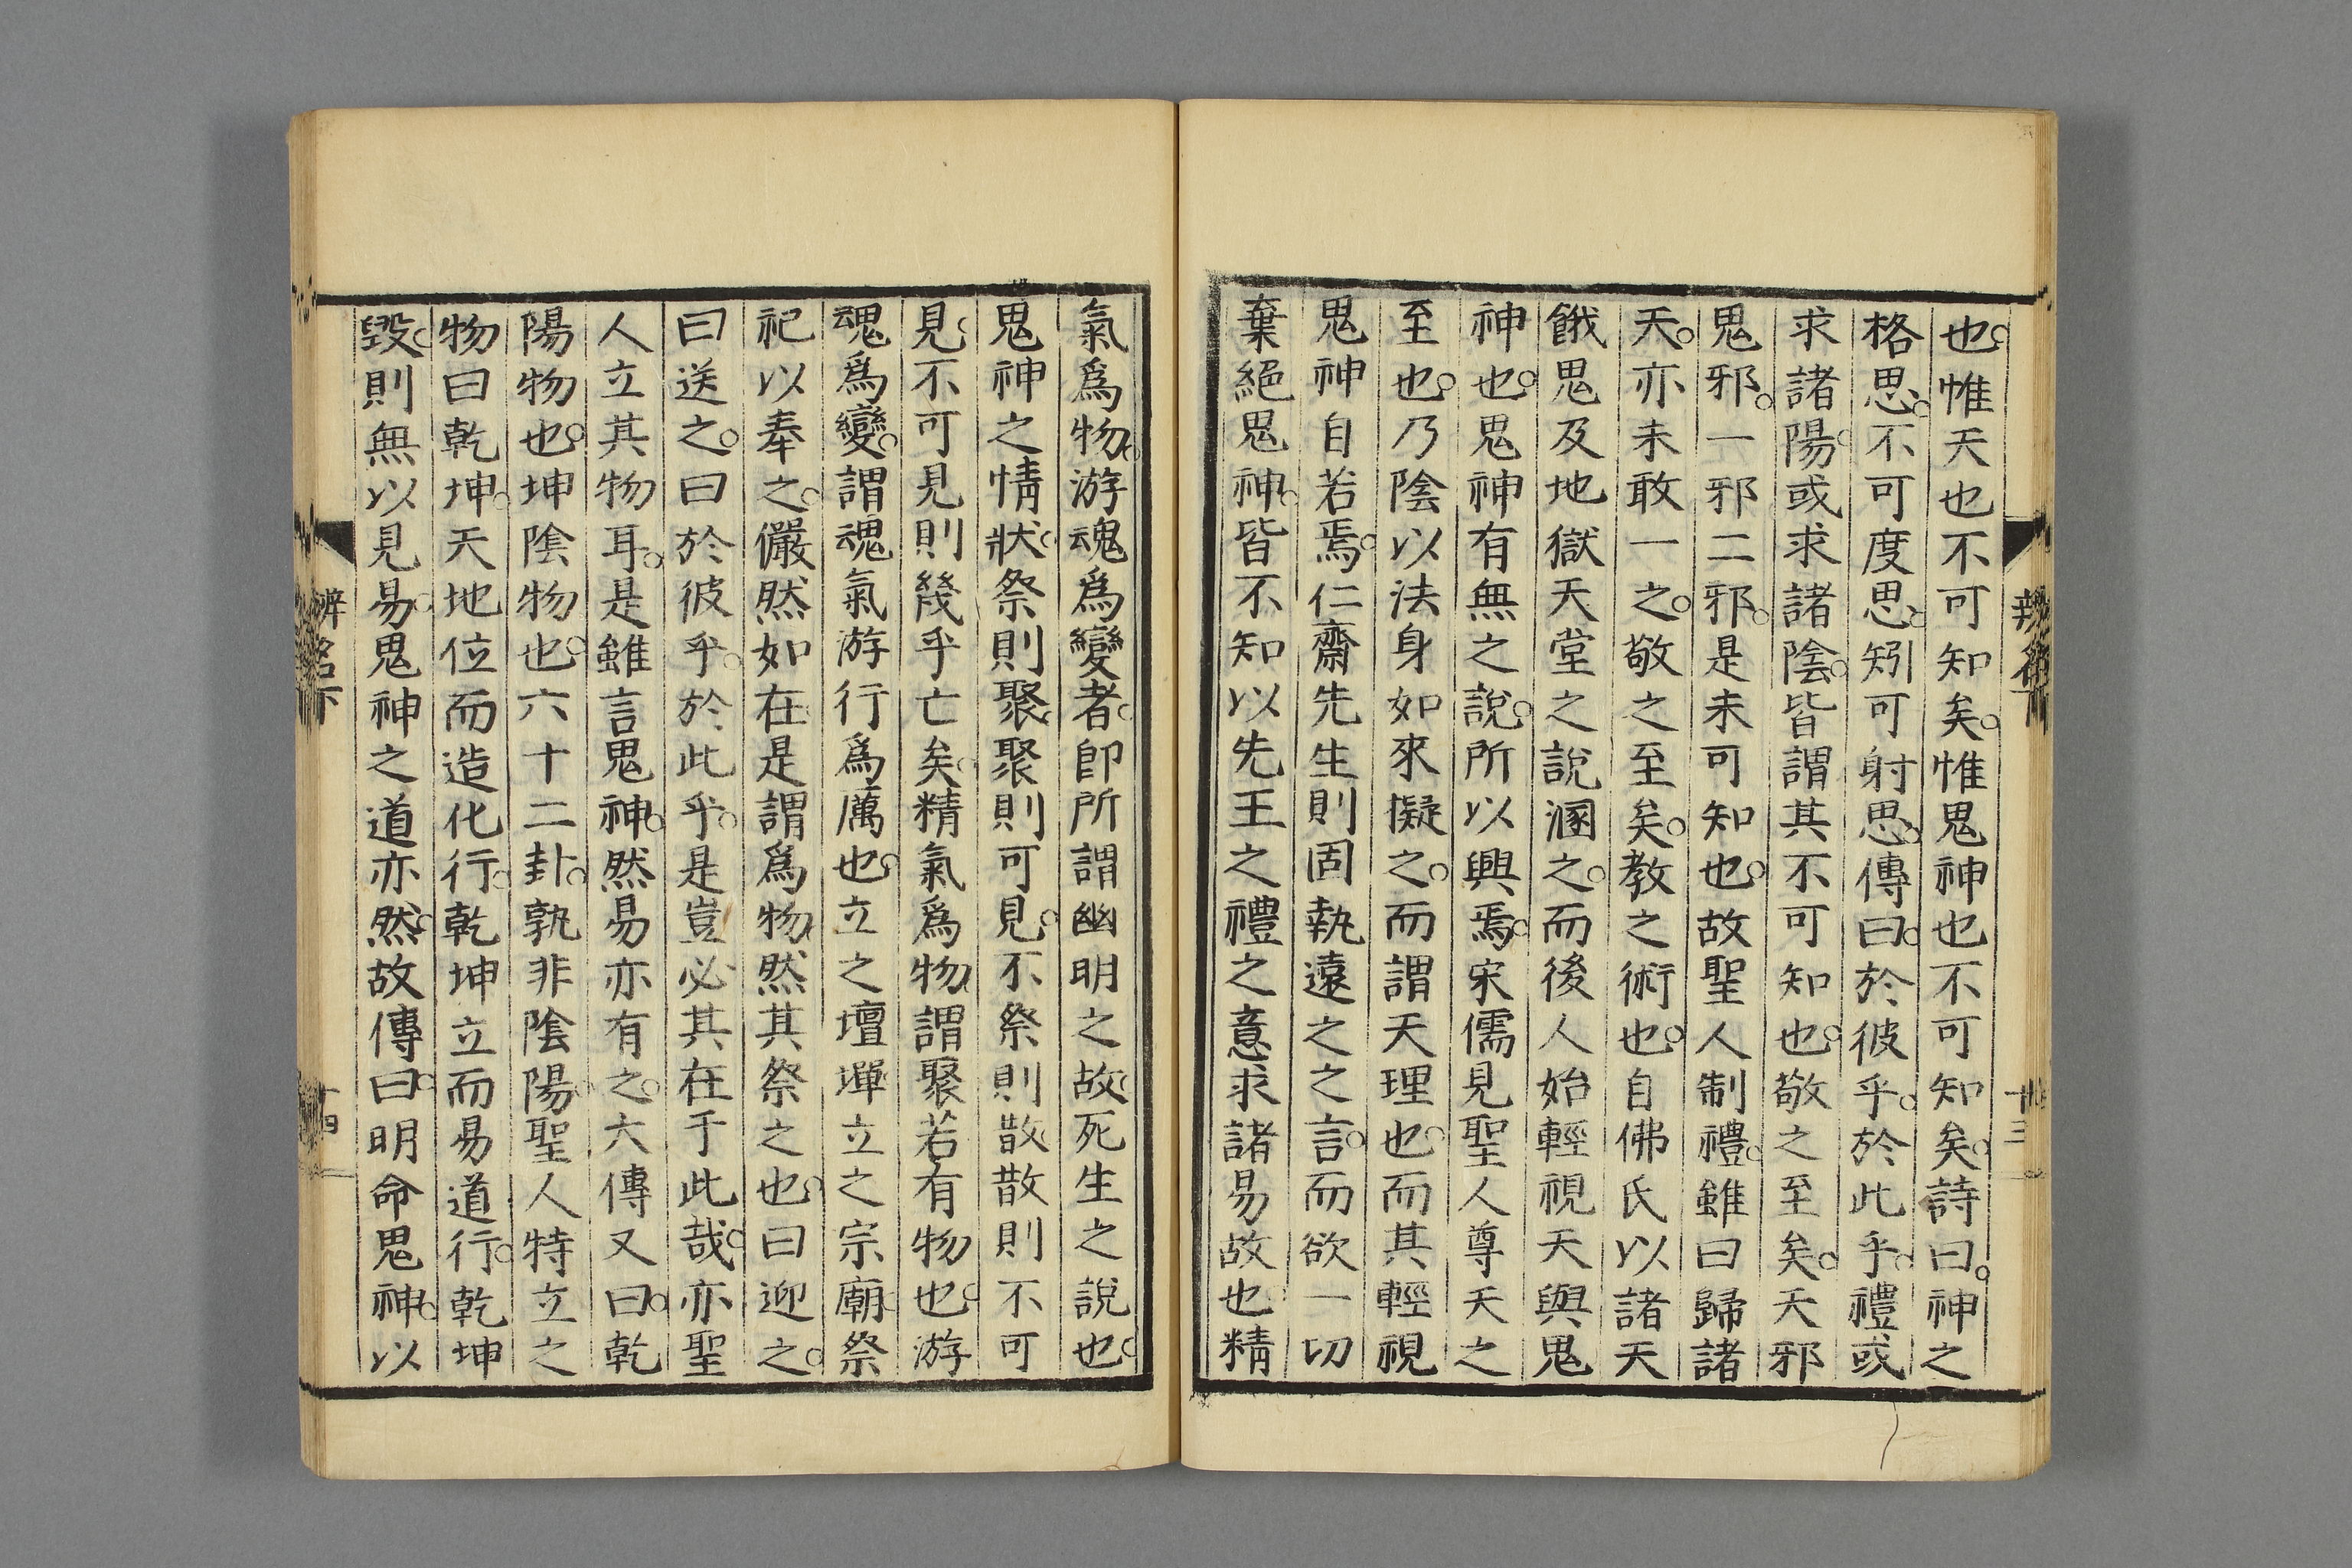 也惟天也不可知矣惟鬼神也不可知矣詩曰神之
格思不可度思矧可射思傳曰於彼乎於此乎禮或
求諸陽或求諸陰皆謂其不可知也敬之至矣天邪
鬼邪一邪二邪是未可知也故聖人制禮雖曰歸諸
天亦未敢一之敬之至矣教之術也自佛氏以諸天
餓鬼及地獄天堂之說溷之而後人始輕視天與鬼
神也鬼神有無之說所以興焉宋儒見聖人尊天之
至也乃陰以法身如來擬之而謂天理也而其輕視
鬼神自若焉仁齋先生則固執遠之之言而欲一切
棄絕鬼神皆不知以先王之禮之意求諸易故也精
辨名下
十三
氣爲物游魂爲變者卽所謂幽明之故死生之說也
鬼神之情狀祭則聚聚則可見不祭則散散則不可
見不可見則幾乎亡矣精氣爲物謂聚若有物也游
魂爲變謂魂氣游行爲厲也立之壇墠立之宗廟祭
祀以奉之儼然如在是謂爲物然其祭之也曰迎之
曰送之曰於彼乎於此乎是豈必其在于此哉亦聖
人立其物耳是雖言鬼神然易亦有之六傳又曰乾
陽物也坤陰物也六十二卦孰非陰陽聖人特立之
物曰乾坤天地位而造化行乾坤立而易道行乾坤
毀則無以見易鬼神之道亦然故傳曰明命鬼神以
辨名下
十四